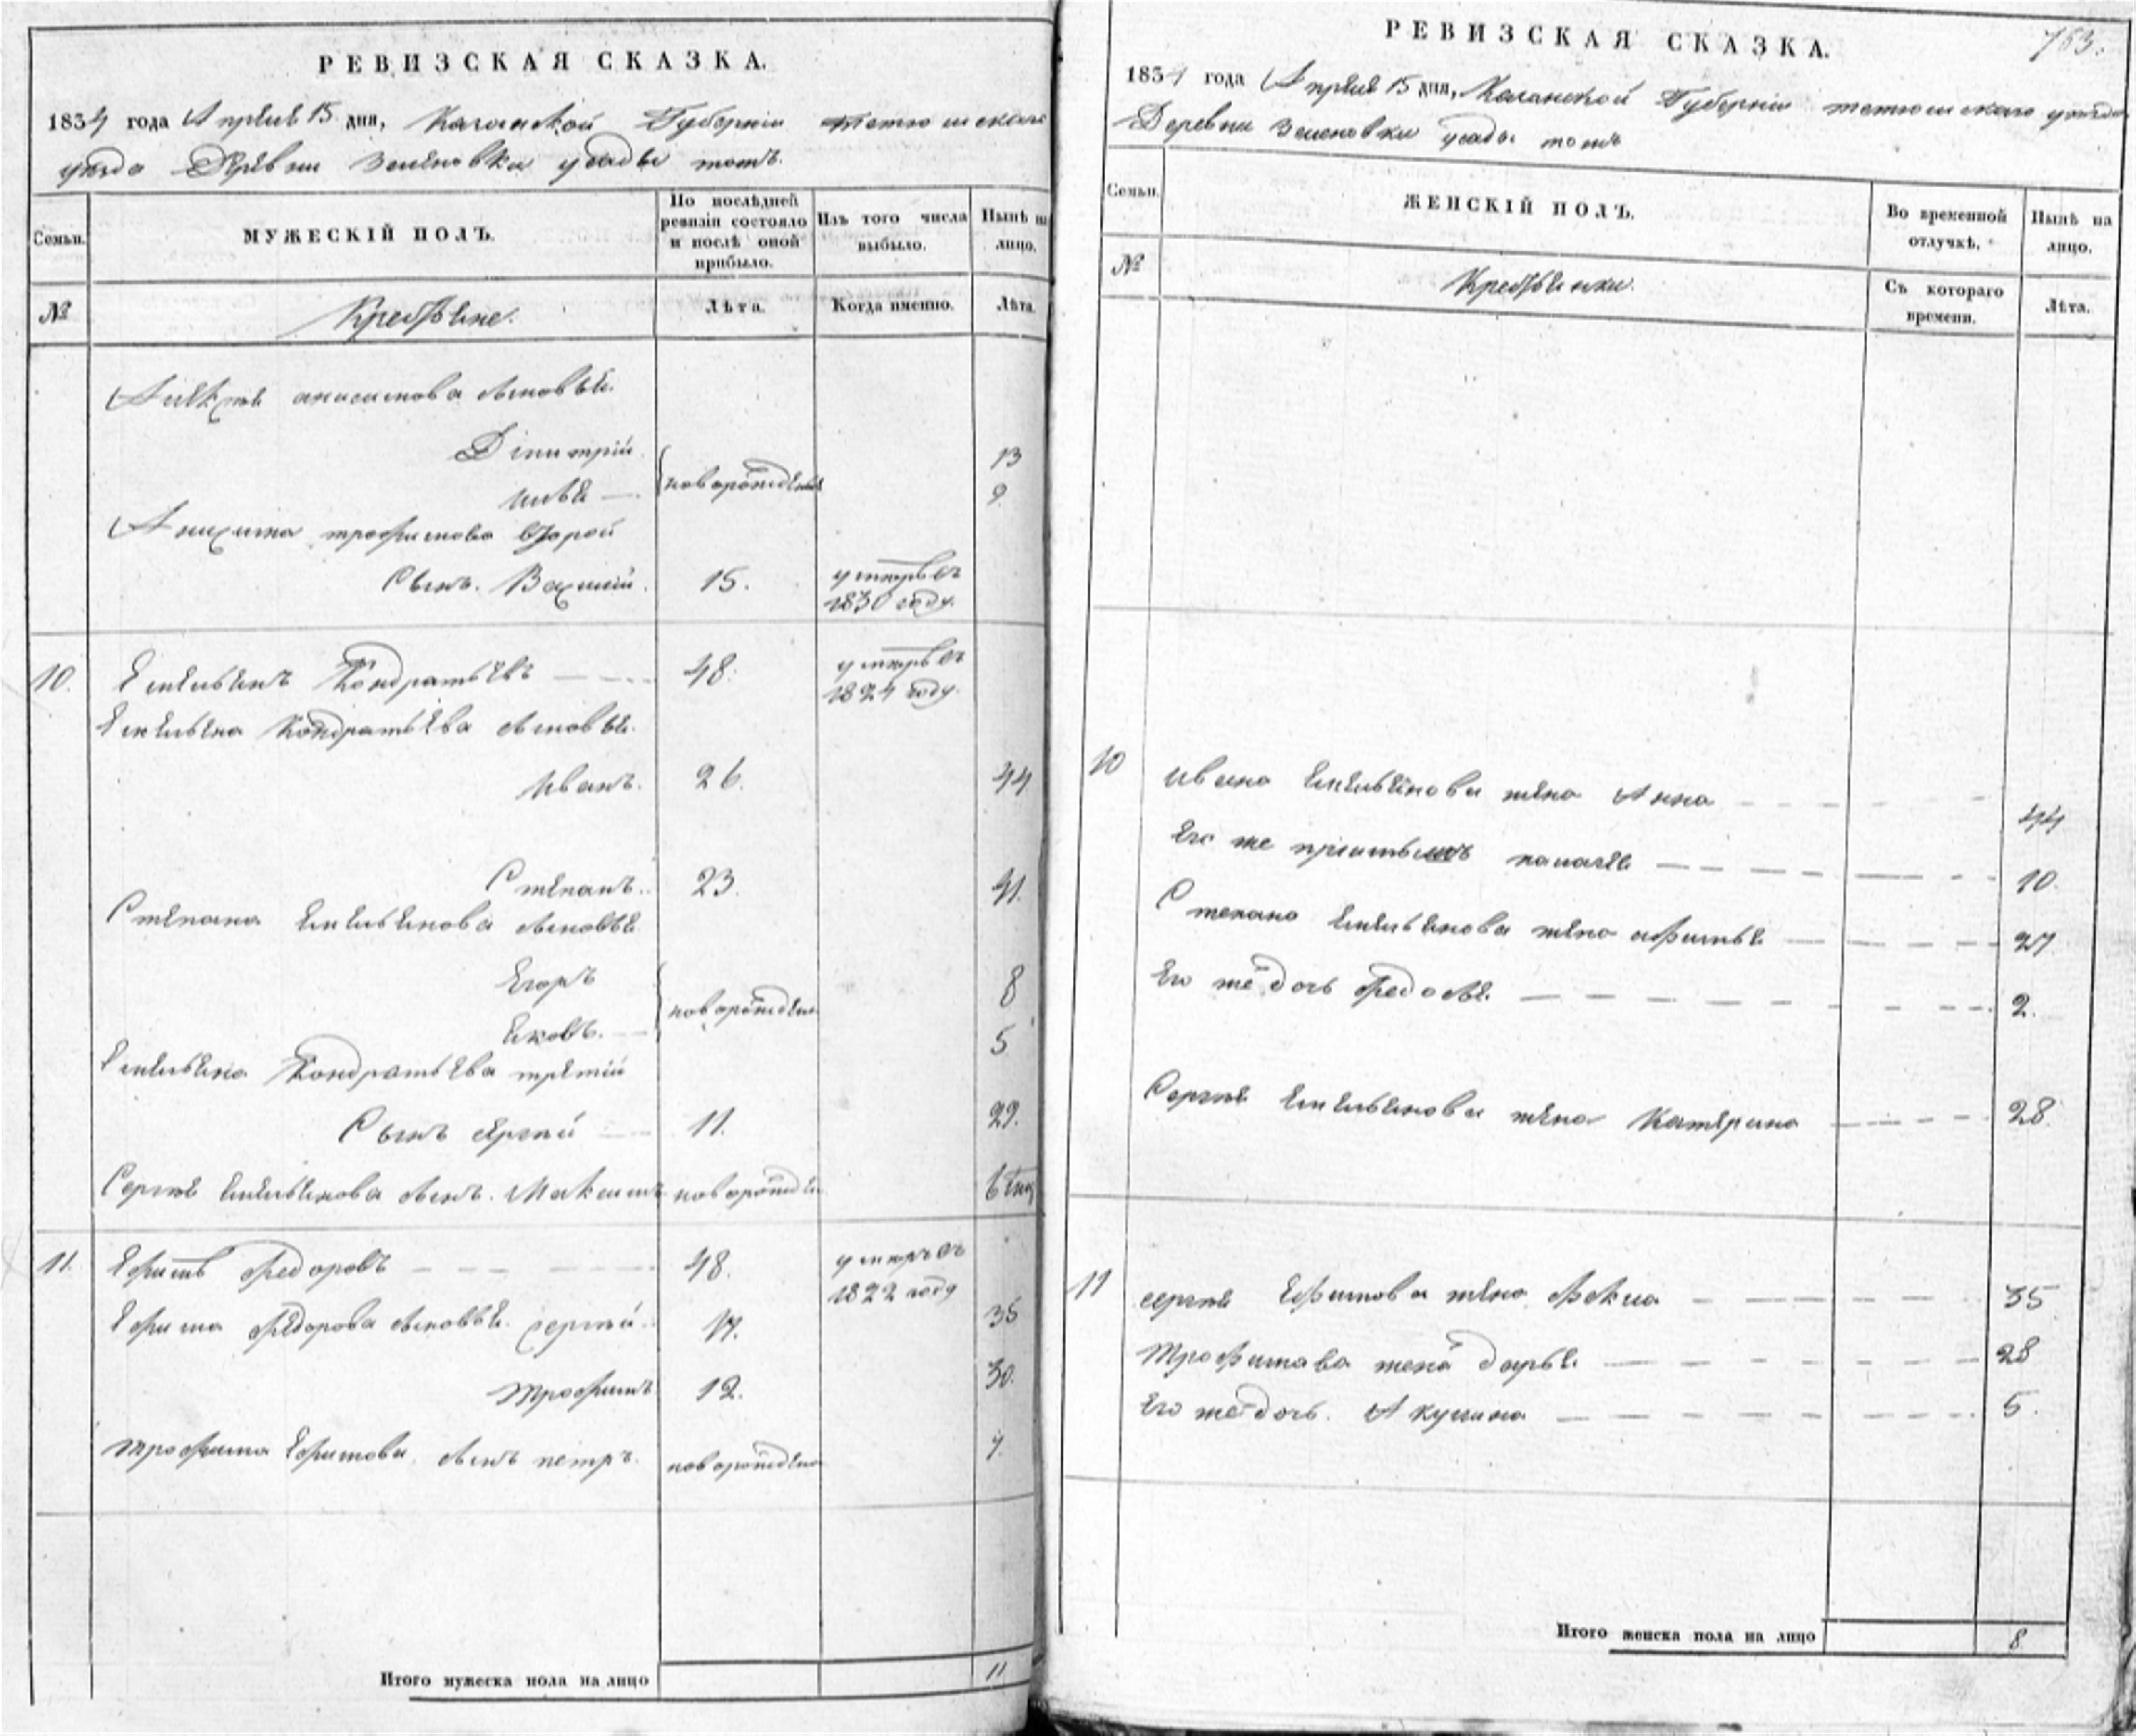 РЕВИЗСКАЯ СКАЗКА.
1834 года Апреля 15 дня, Казанской Губернии тетюшскаго
уезда Деревни Зеленовка усады тожъ.
Семьи.
МУЖЕСКІЙ ПОЛЪ.
По послѣдней ревизіи состояло и послѣ оной прибыло.
Изъ того числа выбыло.
Нынѣ на лицо.
№
Крестьяне.
Лѣта.
Когда именно.
Лѣта.
анисимова сыновья.
Димитрій 13
Илья — новорожденны 9
трофимова второй
Сынъ. 15. умтръ въ
1830 году.
10. Емельянъ Кондратьевъ — 48. умтръ въ
1824 году.
Емельяна Кондратьева сыновья.
Иванъ. 26. 44
Степанъ. 23. 41.
Степана Емельянова сыновья
Егоръ 8
Яковъ. — новорожден 5
Емельяна Кондратьева третій
Сынъ сергей — 11. 29.
Сергея Емельянова сынъ. Максимъ новорожден
11. Ефимъ федоровъ — 48. умтръ въ
1822 году
Ефима федорова сыновья. сергей. 17. 35
трофимъ 12. 30.
трофима Ефимова. сынъ петръ. новорожден 7.
Итого мужеска пола на лицо 11
763.
РЕВИЗСКАЯ СКАЗКА.
1834 года Апреля 15 дня, Казанской Губернии тетюшскаго уезда
Деревни Зеленовки усады тожъ
Семьи.
ЖЕНСКІЙ ПОЛЪ.
Во временной отлучкѣ.
Нынѣ на лицо.
№
Крестьянки.
Съ котораго времени.
Лѣта.
10 Ивана Емельянова жена Анна — 44
Его же — 10
Степана Емельянова жена афимья — 27
Его же дочь федосья. — 2.
Сергея Емельянова жена Катерина — 28.
11 сергея Ефимова жена фокла — 35
трофимова жена дарья — 28
Его же дочь. Акулина — 5.
Итого женска пола на лицо 8